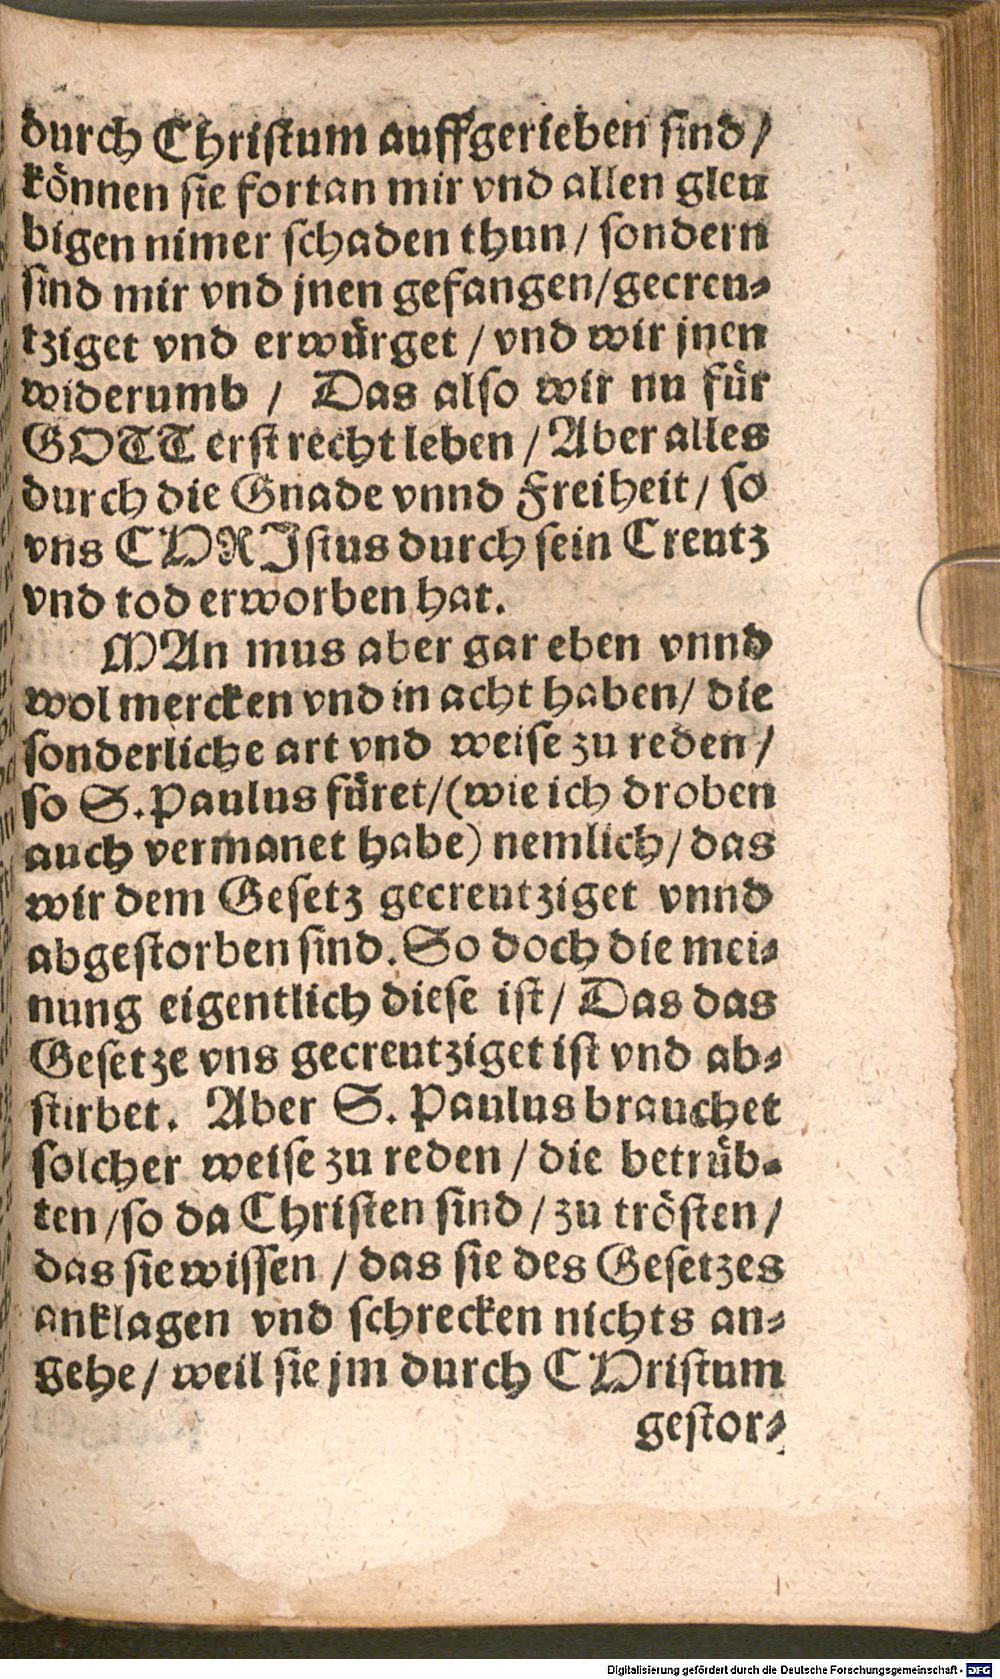 durch Christum auffgerieben sind /
können sie fortan mir vnd allen gleu
bigen nimer schaden thun / sondern
sind mir vnd jnen gefangen/gecreu-
tziget vnd erwürget / vnd wir jnen
widerumb / Das also wir nu für
GOTT erst recht leben / Aber alles
durch die Gnade vnnd Freiheit / so
vns CHRIstus durch sein Creutz
vnd tod erworben hat.
MAn mus aber gar eben vnnd
wol mercken vnd in acht haben/ die
sonderliche art vnd weise zu reden /
so S. Paulus füret/(wie ich droben
auch vermanet habe) nemlich / das
wir dem Gesetz gecreutziget vnnd
abgestorben sind. So doch die mei-
nung eigentlich diese ist / Das das
Gesetze vns gecreutziget ist vnd ab-
stirbet. Aber S. Paulus brauchet
solcher weise zu reden / die betrüb-
ten /so da Christen sind / zu trösten /
das sie wissen / das sie des Gesetzes
anklagen vnd schrecken nichts an-
gehe / weil sie jm durch CHristum
gestor-
Digitalisierung gefördert durch die Deutsche Forschungsgemeinschaft - DFG